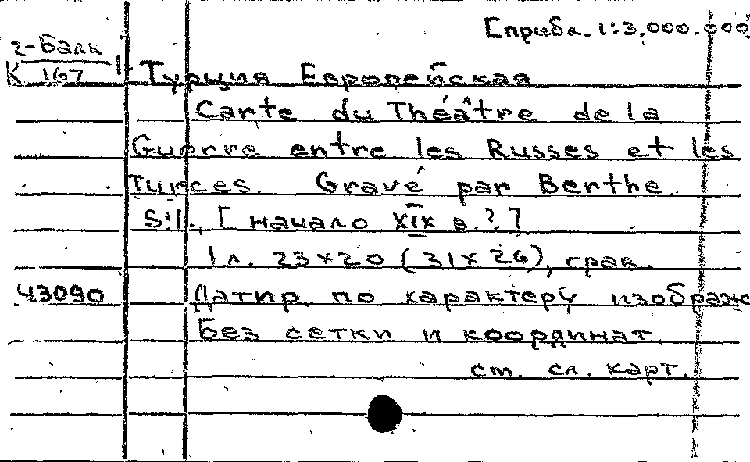 [прибл. 1:3,000.000
2-Балк
К 167
Турция Европейская
Carte du Théâtre de la
Guerre entre les Russes et les
Turcces. Gravé par Berthe
S.l., [начало XIX в.?]
1 л. 23×20 (31×26), грав.
43090 Датир. по характеру изображ
Без сетки и координат.
см. сл. карт.